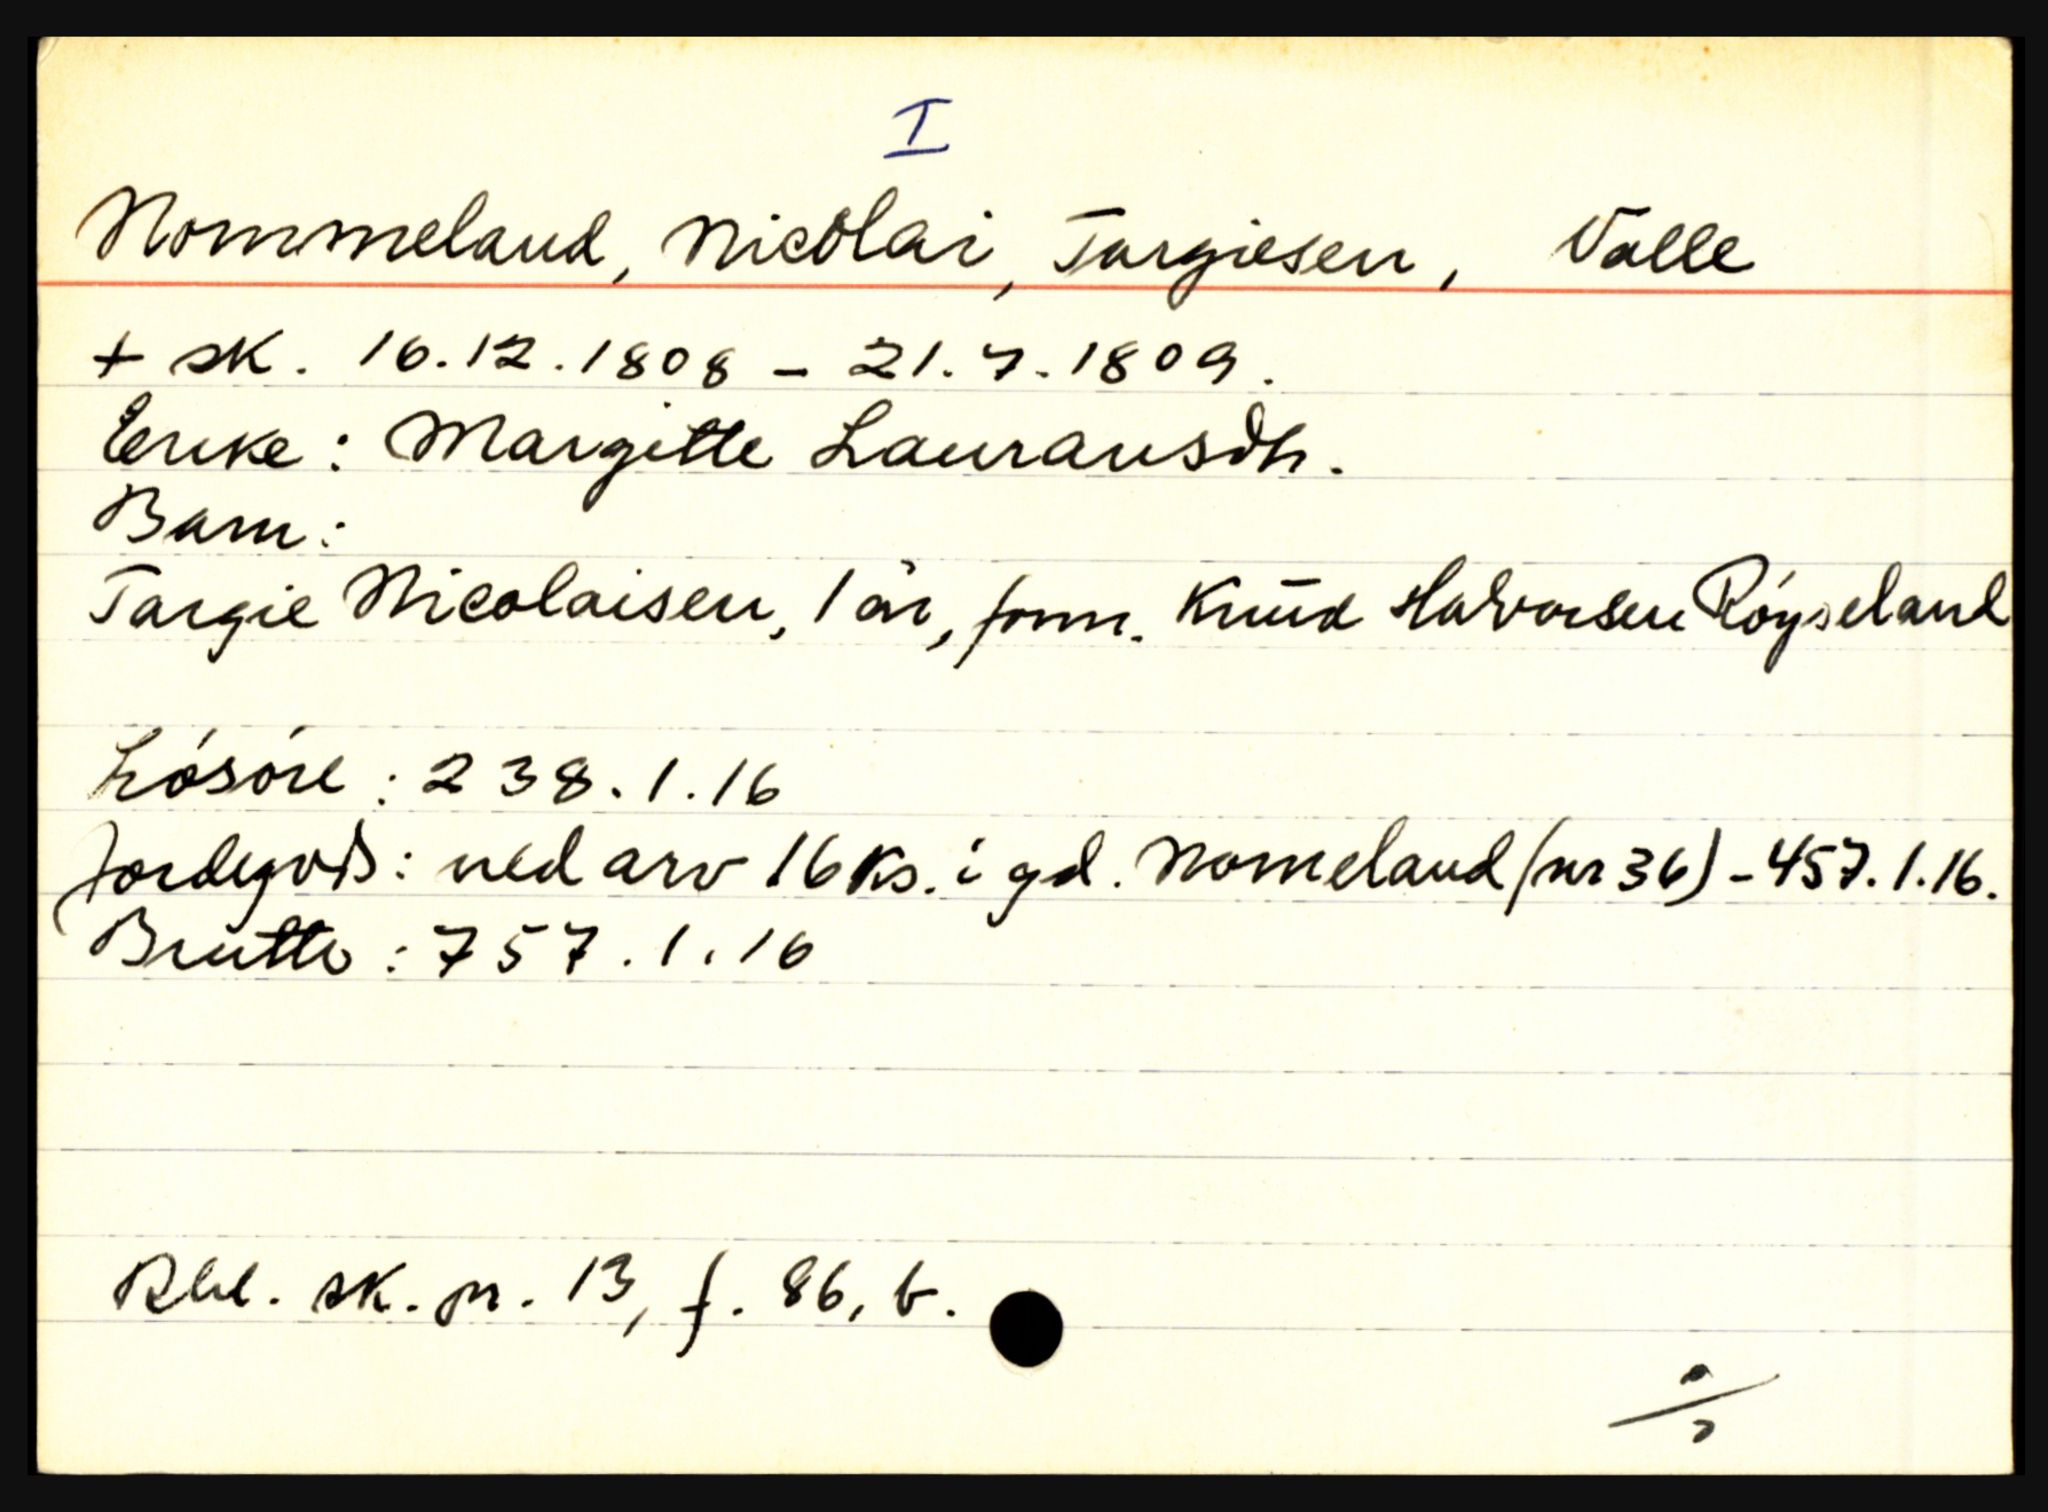 I
Nommeland, Nicolai, Targiesen, Valle
+ sk. 16.12.1808 - 21.7.1809.
Enke: Margitte Lauransdtr.
Barn:
Targie Nicolaisen, 1 år, form. Knud Halvorsen Röyseland
Lösöre: 238.1.16
Jordegods: ved arv 16 ks. i gd. Nomeland (nr 36) - 457.1.16.
Brutto: 757.1.16
Rbl. sk. pr. 13, f. 86, b.